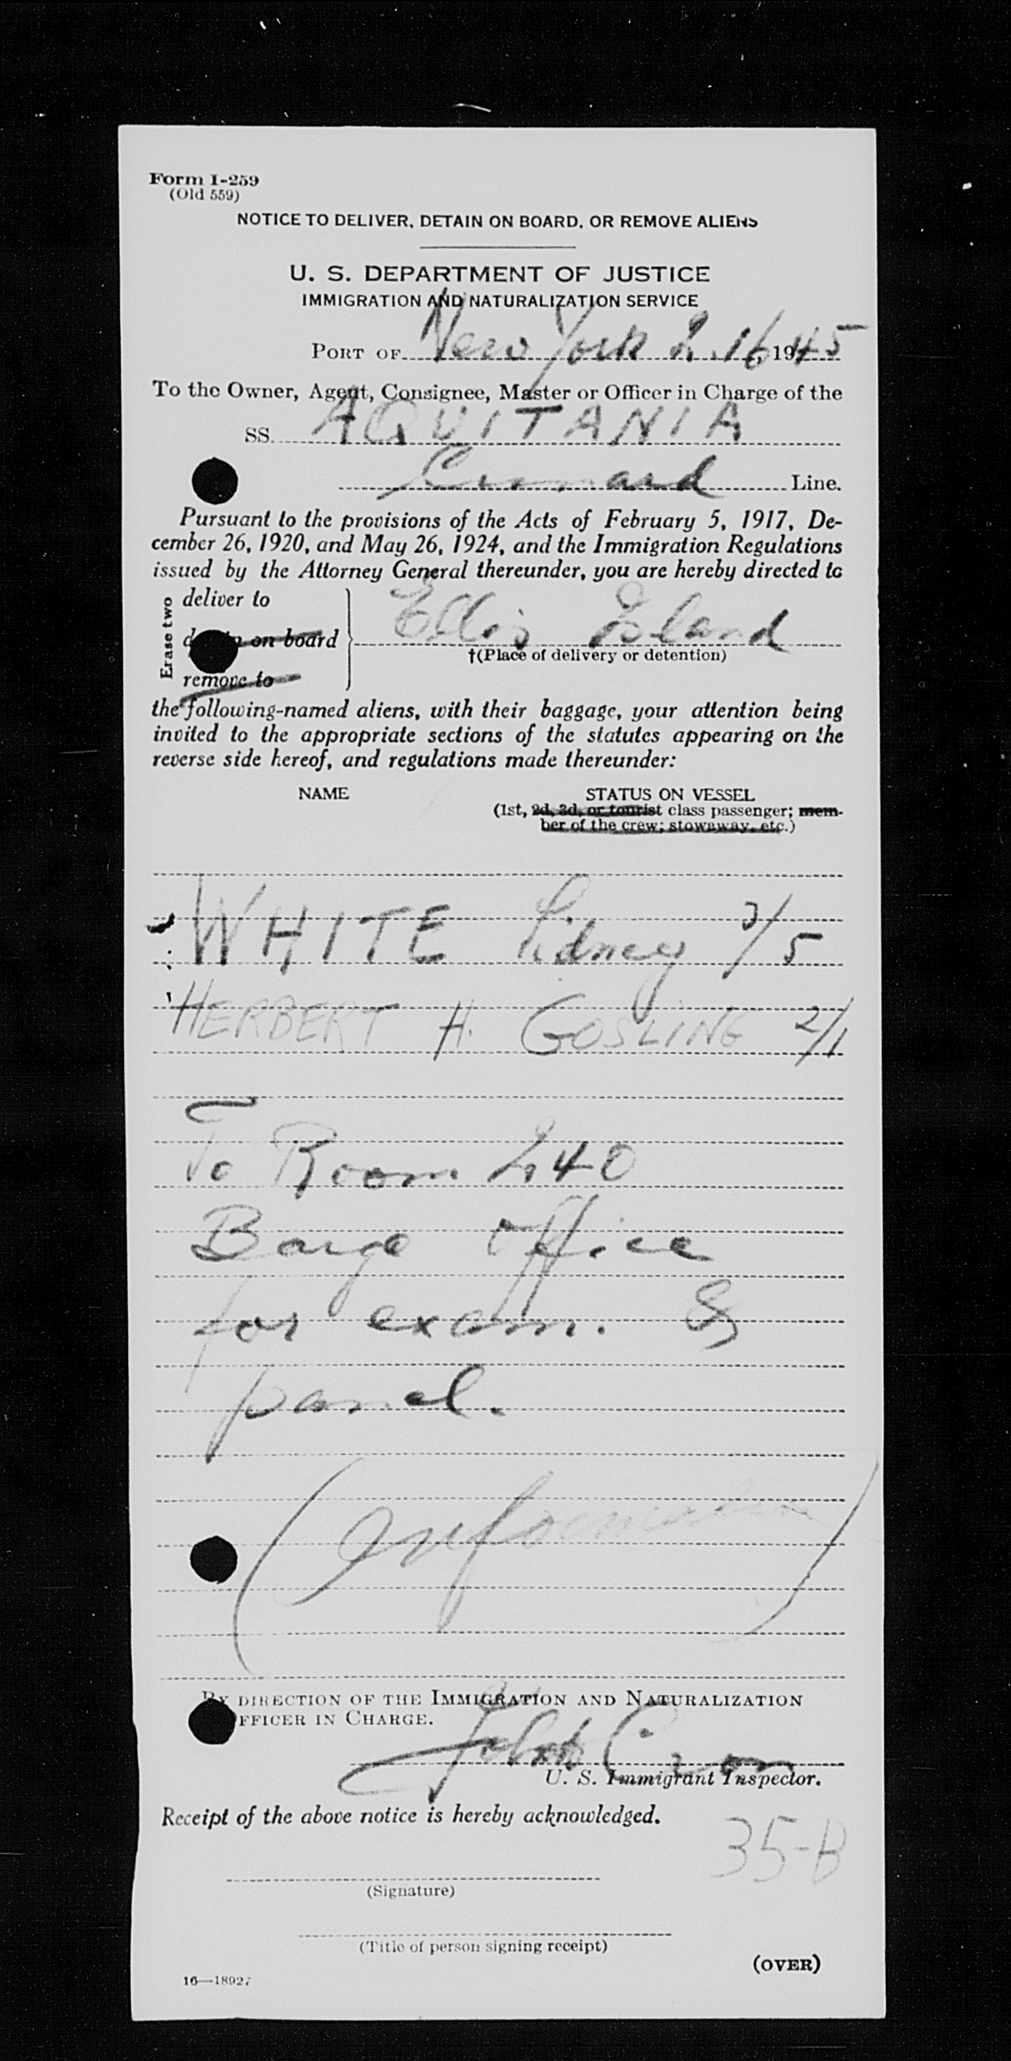 Form I-259
(Old 559)
NOTICE TO DELIVER, DETAIN ON BOARD, OR REMOVE ALIENS
U. S. DEPARTMENT OF JUSTICE
IMMIGRATION AND NATURALIZATION SERVICE
PORT OF New York 2.16, 1945
To the Owner, Agent, Consignee, Master or Officer in Charge of the
SS. AQUITANIA
Cunard Line.
Pursuant to the provisions of the Acts of February 5, 1917, De-
cember 26, 1920, and May 26, 1924, and the Immigration Regulations
issued by the Attorney General thereunder, you are hereby directed to
Erase two
deliver to
on board
remove to
Ellis Island
†(Place of delivery or detention)
the following-named aliens, with their baggage, your attention being
invited to the appropriate sections of the statutes appearing on the
reverse side hereof, and regulations made thereunder:
NAME STATUS ON VESSEL
(1st, 2d, 3d, or tourist class passenger; mem-
ber of the crew; stowaway, etc.)
WHITE Sidney 3/5
HERBERT H. GOSLING 2/1
To Room 240
Barge office
for exam. &
panel.
(Information)
BY DIRECTION OF THE IMMIGRATION AND NATURALIZATION
OFFICER IN CHARGE.
U. S. Immigrant Inspector.
Receipt of the above notice is hereby acknowledged.
35-B
(Signature)
(Title of person signing receipt)
(OVER)
16—18927